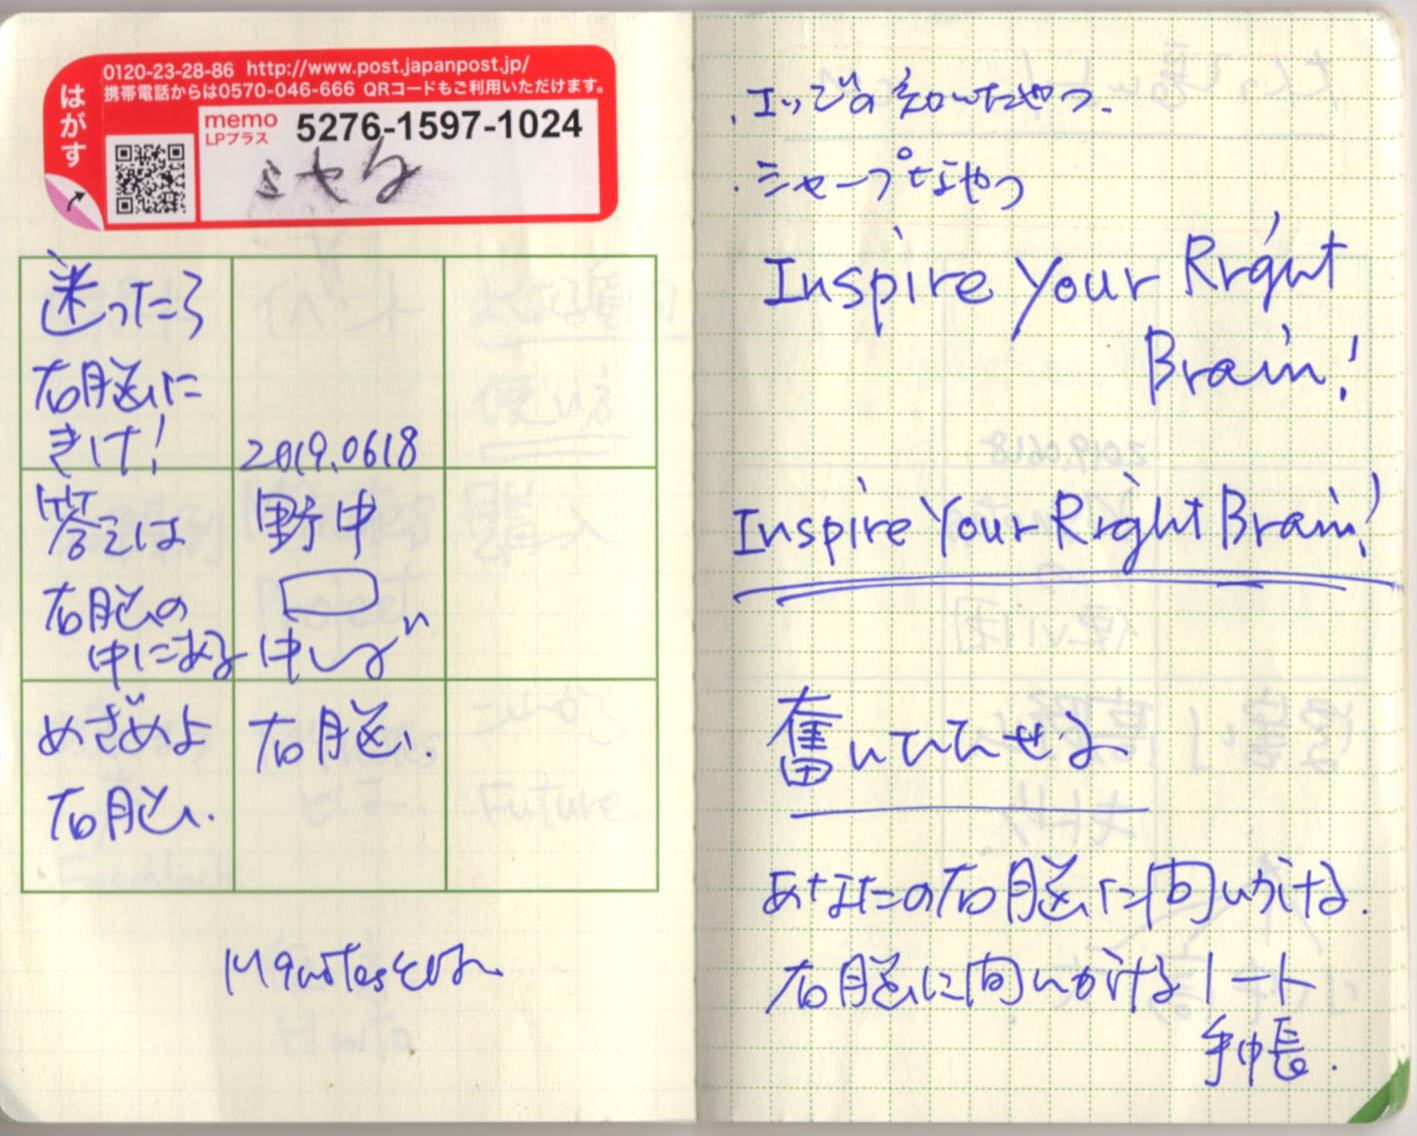 はがす
0120-23-28-86 http://www.post.japanpost.jp/
携帯電話からは0570-046-666 QRコードもご利用いただけます。
memo
LPプラス
5276-1597-1024
迷ったら
右脳に
きけ!
2019.0618
答えは
右脳の
中にある
野中
めざめよ
右脳.
右脳.
とは
・エッジの
・シャープなやつ
Inspire Your Right
Brain!
Inspire Your Right Brain!
奮い
あなたの右脳に問いかける.
右脳に問いかけるノート
手帳.